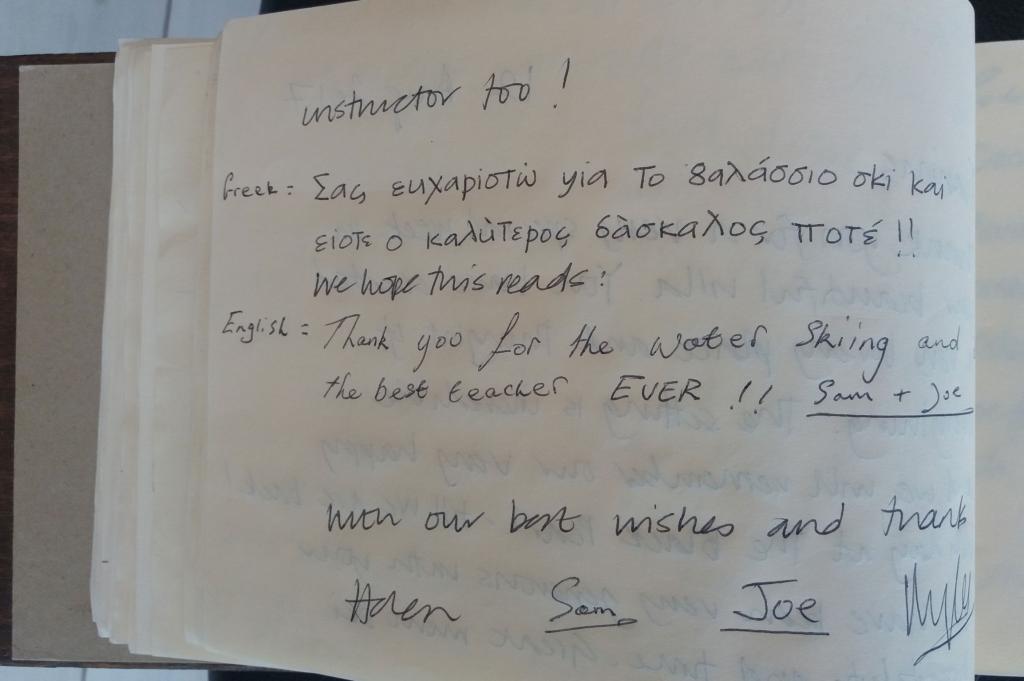 instructor too !
Greek = Σας ευχαριστώ για το θαλάσσιο σκι και
είστε ο καλύτερος δάσκαλος ποτέ !!
We hope this reads :
English = Thank you for the water Skiing and
the best teacher EVER !! Sam + Joe
With our best wishes and thank
Helen Sam Joe